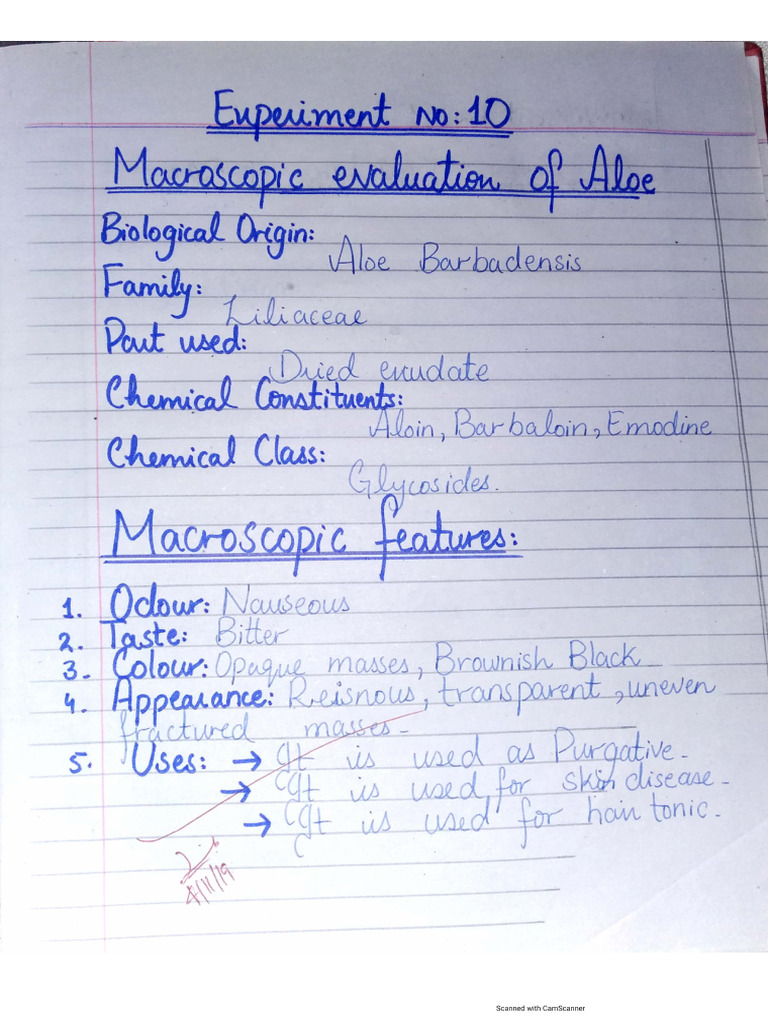 Experiment No: 10
Macroscopic evaluation of Aloe
Biological Origin:
Aloe Barbadensis
Family:
Liliaceae
Part used:
Dried exudate
Chemical Constituents:
Aloin, Barbaloin, Emodine
Chemical Class:
Glycosides.
Macroscopic features:
1. Odour: Nauseous
2. Taste: Bitter
3. Colour: Opaque masses, Brownish Black
4. Appearance: Reisnous, transparent, uneven
fractured masses.
5. Uses: → It is used as Purgative.
→ It is used for skin disease.
→ It is used for hair tonic.
4/11/19
Scanned with CamScanner